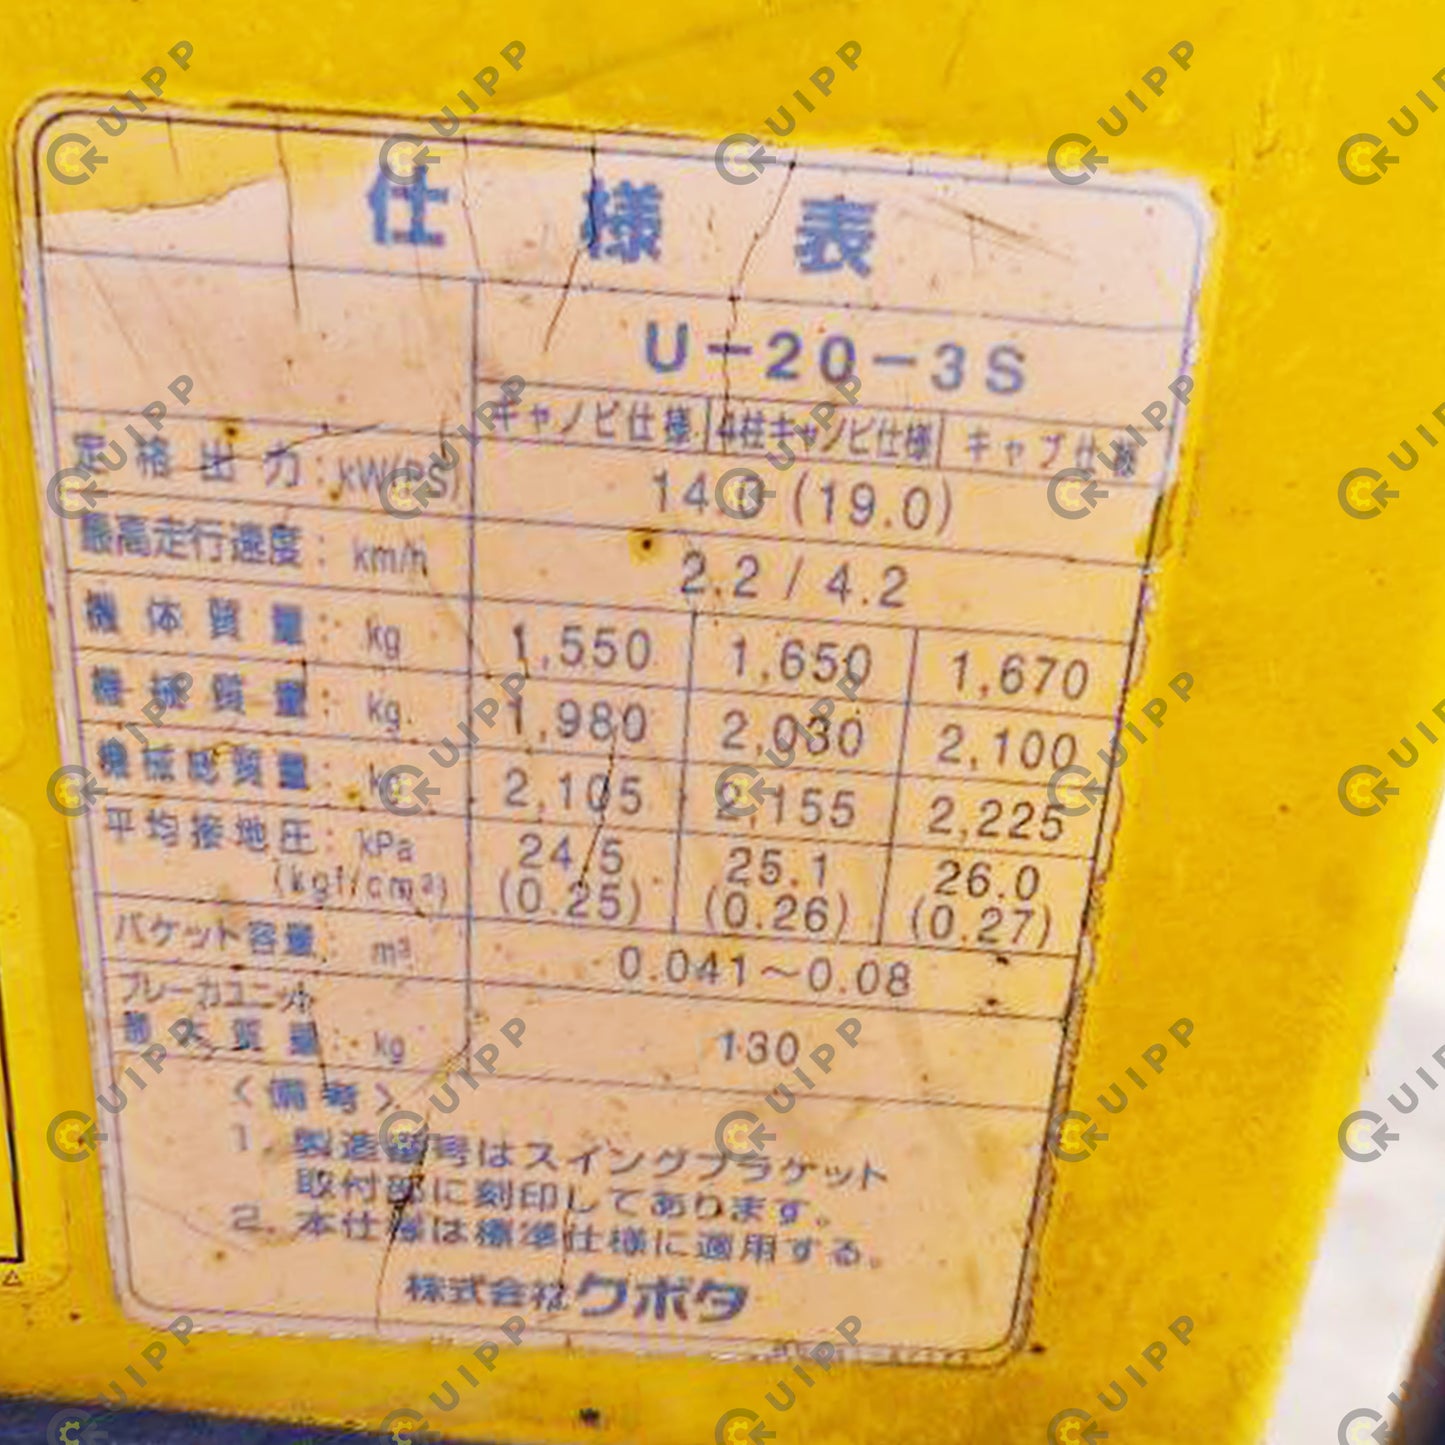 仕様表
U-20-3S
キャノピ仕様 4柱キャノピ仕様 キャブ仕様
定格出力: kW(PS) 14.0 (19.0)
最高走行速度: km/h 2.2 / 4.2
機体質量: kg 1,550 1,650 1,670
機械質量: kg 1,980 2,030 2,100
機械総質量: kg 2,105 2,155 2,225
平均接地圧: kPa 24.5 25.1 26.0
(kgf/cm²) (0.25) (0.26) (0.27)
バケット容量: m³ 0.041~0.08
ブレーカユニット
最大質量: kg 130
<備考>
1. 製造番号はスイングブラケット
取付部に刻印してあります。
2. 本仕様は標準仕様に適用する。
株式会社クボタ
QUIPP